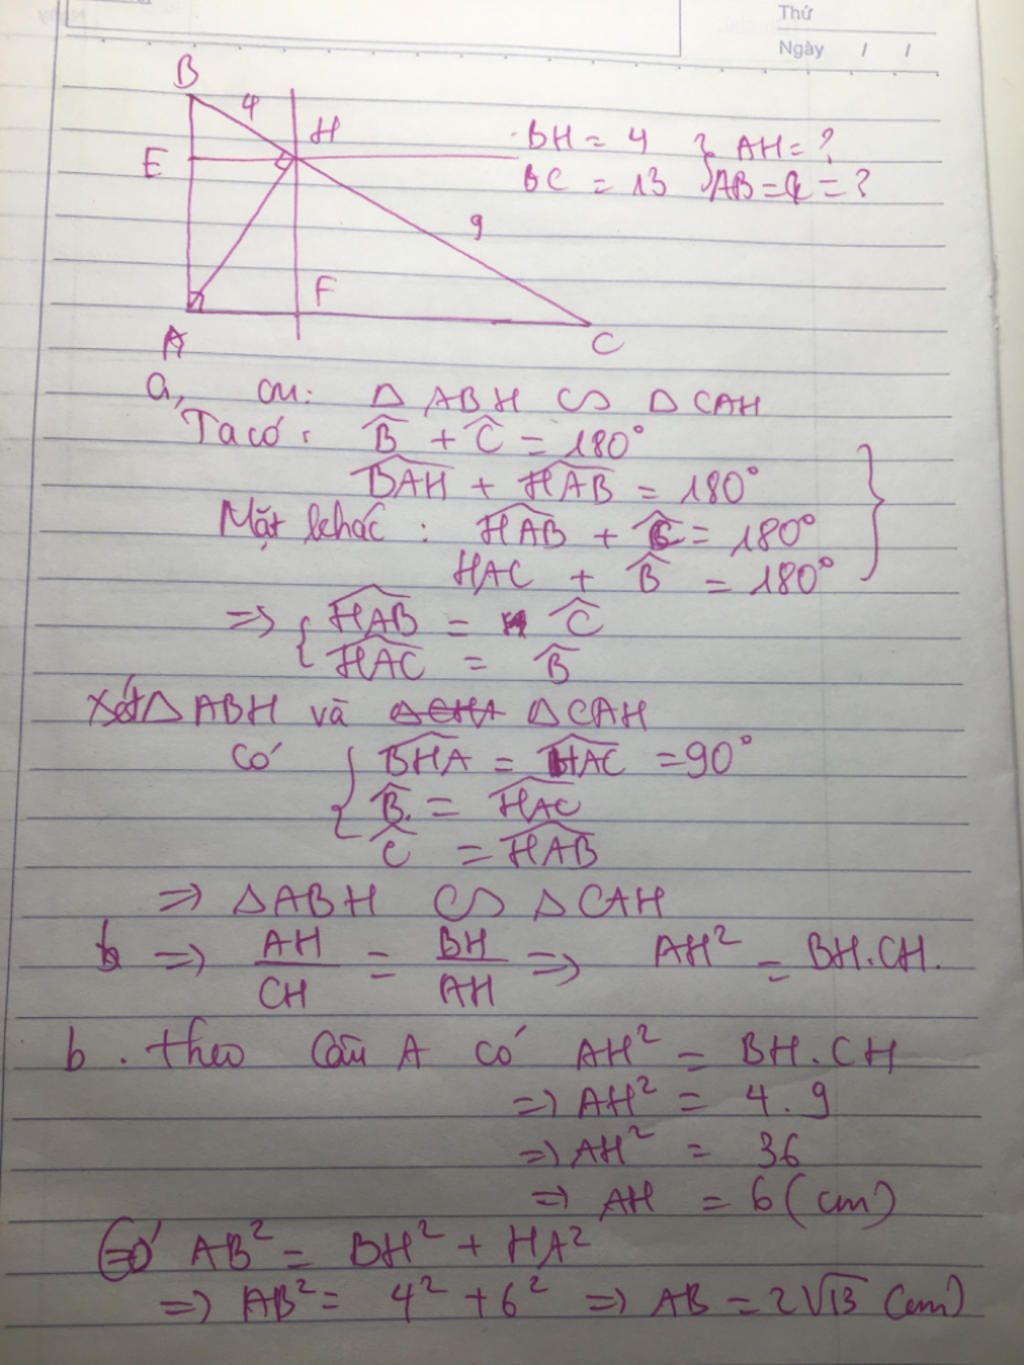 Thứ
Ngày / /
B
4
H
E
9
F
A
C
BH = 4 } AH = ?
BC = 13 } AB = = ?
a, CM: △ ABH ∽ △ CAH
Ta có: B̂ + Ĉ = 180°
BAH + HAB = 180°
Mặt khác: HAB + Ĉ = 180°
HAC + B̂ = 180°
=> { HAB = Ĉ
{ HAC = B̂
Xét △ ABH và △ CAH
Có { BHA = HAC = 90°
{ B̂ = HAC
Ĉ = HAB
=> △ABH ∽ △CAH
=> AH/CH = BH/AH => AH² = BH.CH.
b. theo Câu A có AH² = BH.CH
=> AH² = 4.9
=> AH² = 36
=> AH = 6 (cm)
Có AB² = BH² + HA²
=> AB² = 4² + 6² => AB = 2√13 (cm)